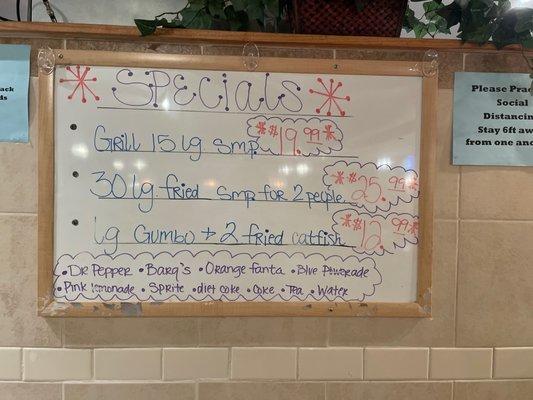 Specials
Grill 15 lg smp. $19.99
30 lg. fried smp for 2 people. $25.99
lg Gumbo + 2 fried catfish $12.99
• DR Pepper • Barq's • Orange fanta • Blue Powerade
• Pink lemonade • Sprite • diet coke • Coke • Tea • Water
Please Prac
Social
Distancing
Stay 6ft aw
from one and